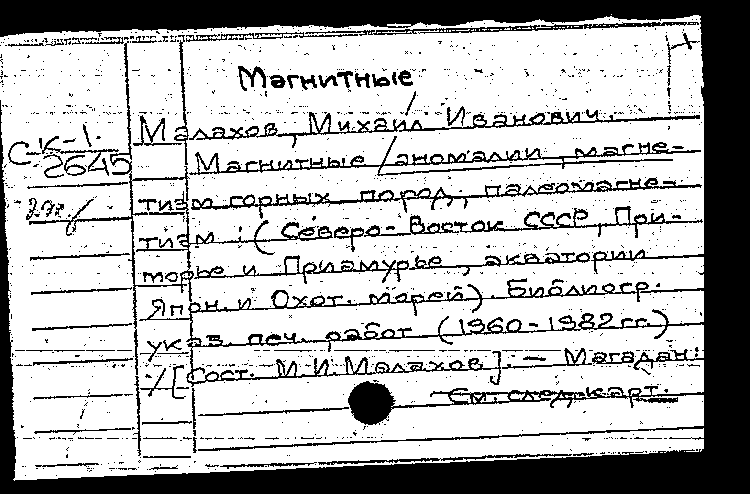 1
Магнитные
Малахов, Михаил Иванович.
С.К-1.
2645
Магнитные / аномалии, магне-
тизм горных пород, палеомагне-
тизм : (Северо-Восток СССР, При-
морье и Приамурье, акватории
Япон. и Охот. морей). Библиогр.
указ. печ. работ (1960-1982 гг.)
/ [Сост. М.И. Малахов]. — Магадан:
См. след. карт.